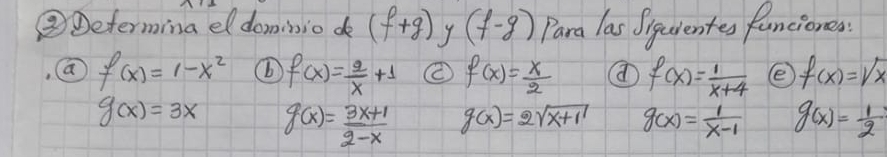 ② Determina el dominio de (f+g) y (f-g) Para las Siguientes funciones:
. ⓐ f(x) = 1-x² ⓑ f(x) = 2/x + 1 ⓒ f(x) = x/2 ⓓ f(x) = 1/x+4 ⓔ f(x) = √x
g(x) = 3x g(x) = 3x+1/2-x g(x) = 2√x+1 g(x) = 1/x-1 g(x) = 1/2